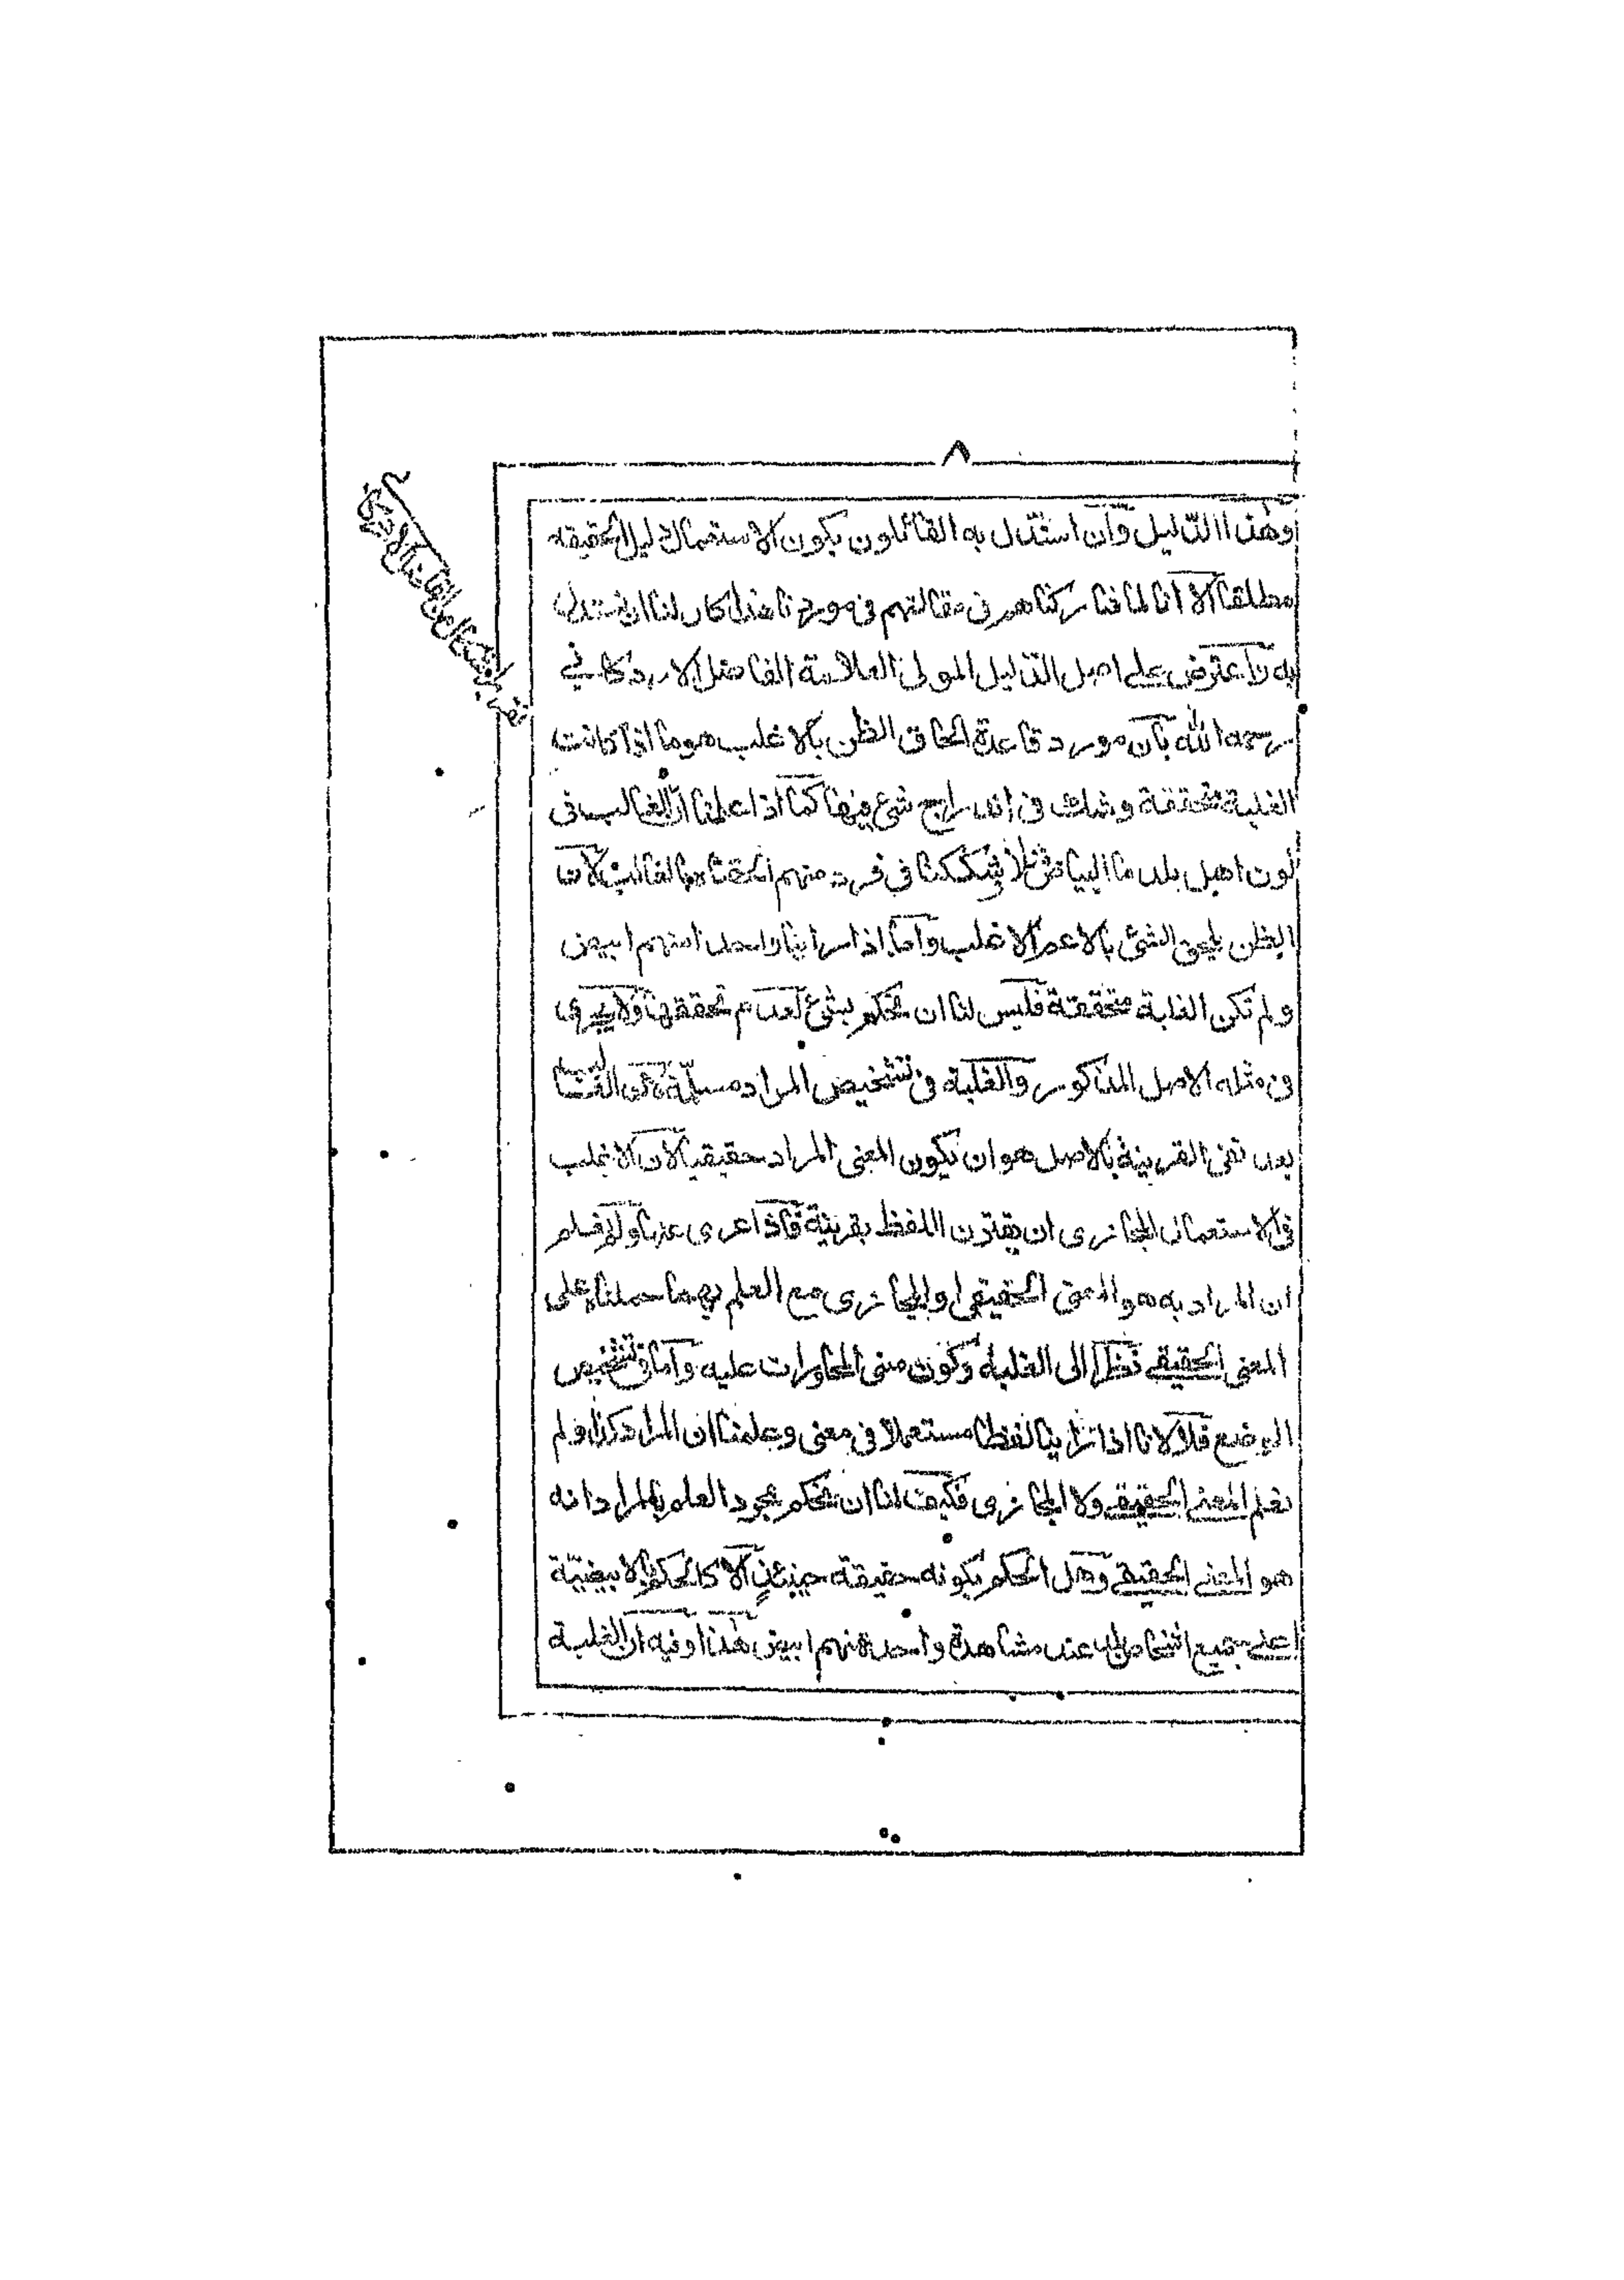 ٨
وهذا الدليل وان استدل به القائلون بكون الاستعمال دليل الحقيقه
مطلقا الا انا لما شاركناهم فى مقالتهم فى مورد نا هذا كان لنا ان نستدل
به واعترض على اصل الدليل المولى العلامة الفاضل الاردكانى
رحمه الله بان مورد قاعدة الحاق الظن بالاغلب هو ما اذا كانت
الغلبة متحققة وشك فى اندراج شئ فيها كما اذا علمنا ان الغالب فى
لون اهل بلد ما البياض وشككنا فى فرد منهم الحقناه بالغالب لان
الظن يلحق الشئ بالاعم الاغلب واما اذا راينا واحدا منهم ابيض
ولم تكن الغلبة متحققة فليس لنا ان نحكم بشئ لعدم تحققها ولا يجرى
فى مثله الاصل المذكور والغلبة فى تشخيص المراد مسلمة
بعد نفى القرينة بالاصل هو ان يكون المعنى المراد حقيقيا لان الاغلب
فى الاستعمال المجازى ان يقترن اللفظ بقرينة فاذا عرى عنها ولم نعلم
ان المراد به هو المعنى الحقيقى او المجازى مع العلم بهما حملناه على
المعنى الحقيقى نظرا الى الغلبة وكون مبنى المحاورات عليه واما فى تشخيص
الوضع فلا لانا اذا راينا لفظا مستعملا فى معنى وعلمنا ان المراد كذا ولم
نعلم المعنى الحقيقى ولا المجازى فكيف لنا ان نحكم بمجرد العلم بالمراد انه
هو المعنى الحقيقى وهل الحكم بكونه حقيقة حينئذ الا كالحكم بالابيضية
على جميع اشخاص البلد عند مشاهدة واحد منهم ابيض هذا وفيه ان الغلبة